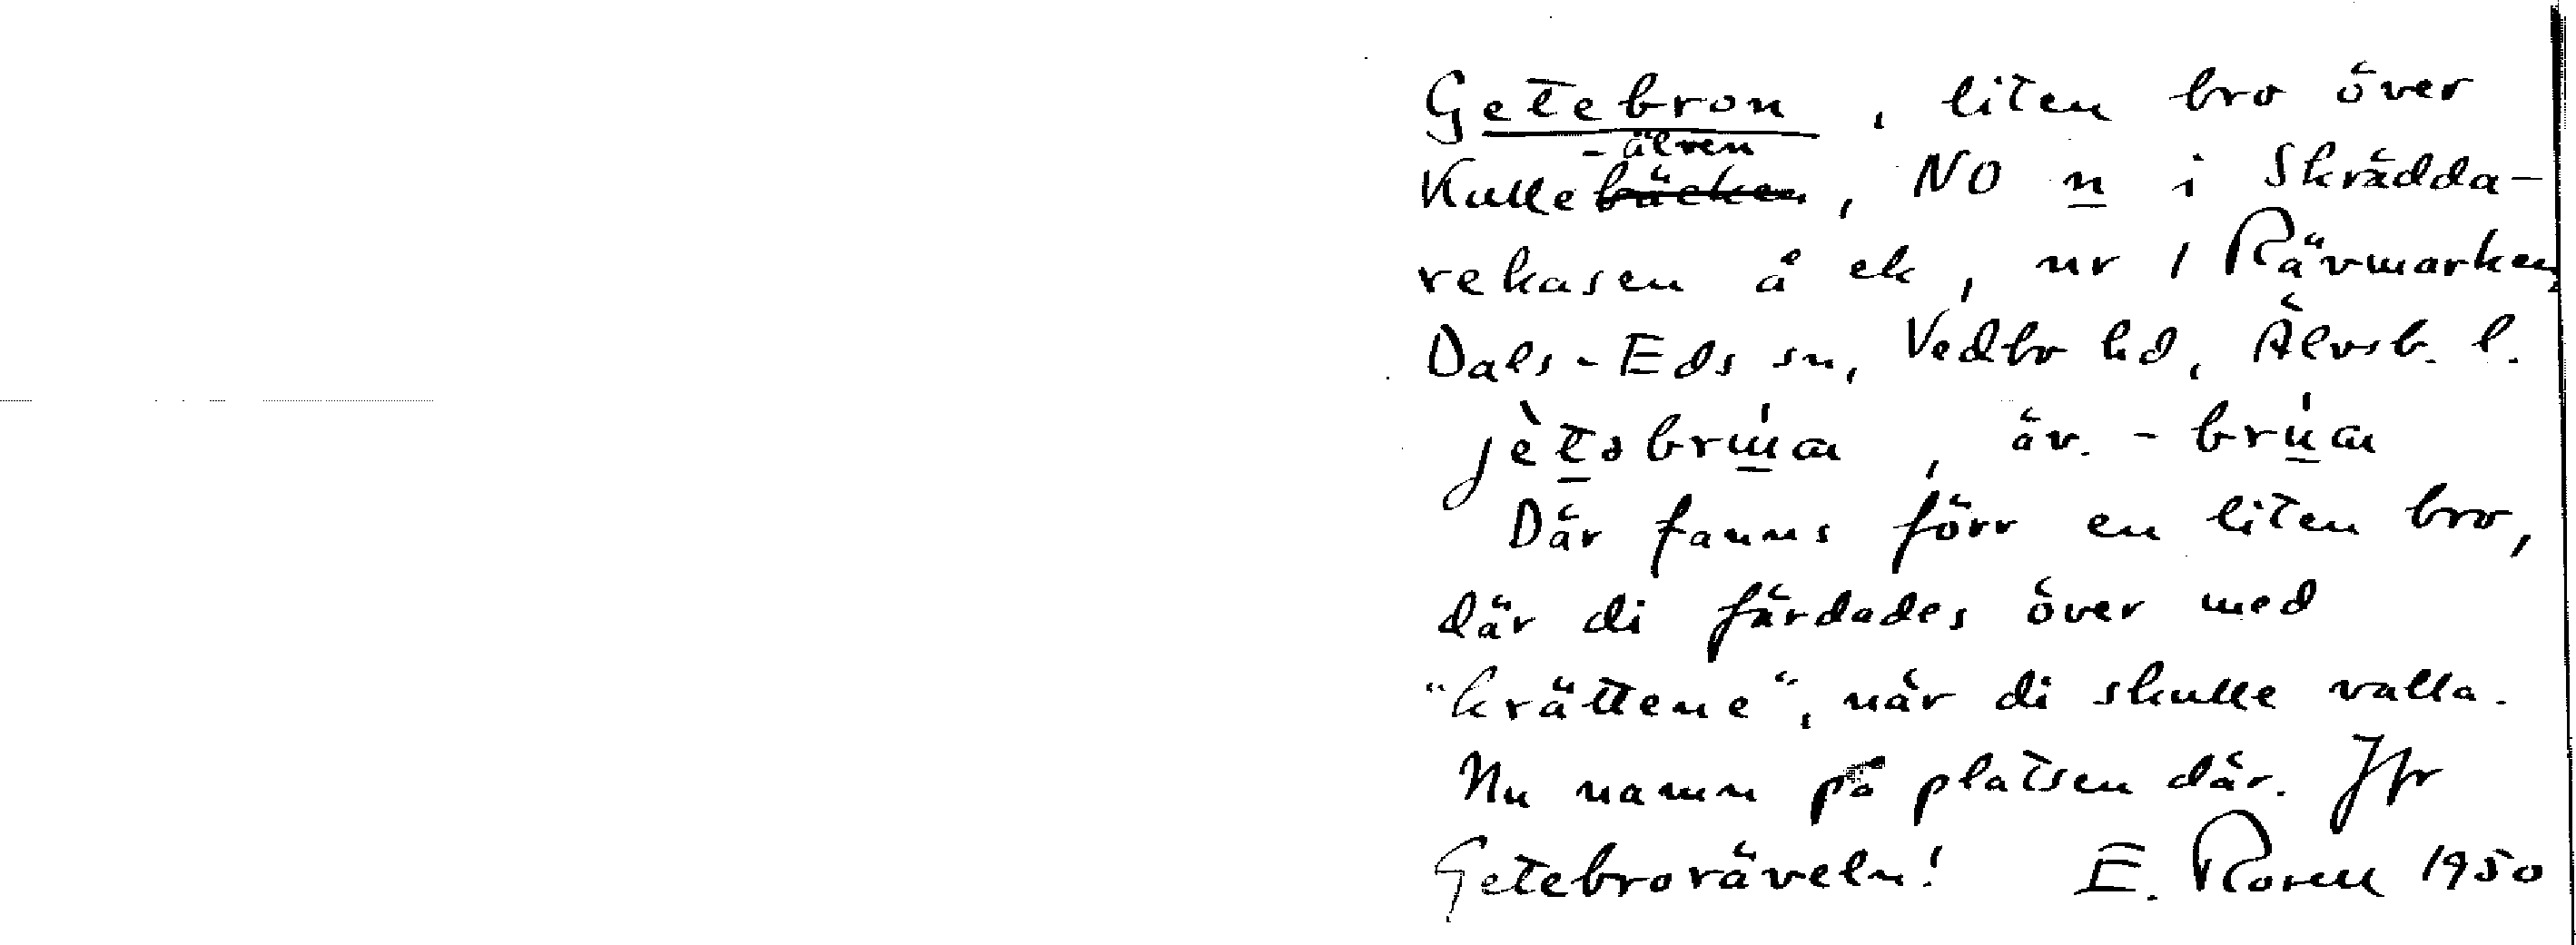 Getebron, liten bro över
-älven
Kulle~~bäcken~~, NO n i Skrädda-
rekasen å ek, nr 1 Rävmarken,
Dals-Eds sn, Vedbo hd, Älvsb. l.
där fanns förr en liten bro,
där di färdades över med
"krättene", när di skulle valla.
Nu namn på platsen där. Jfr
Getebroräveln! E. 1950